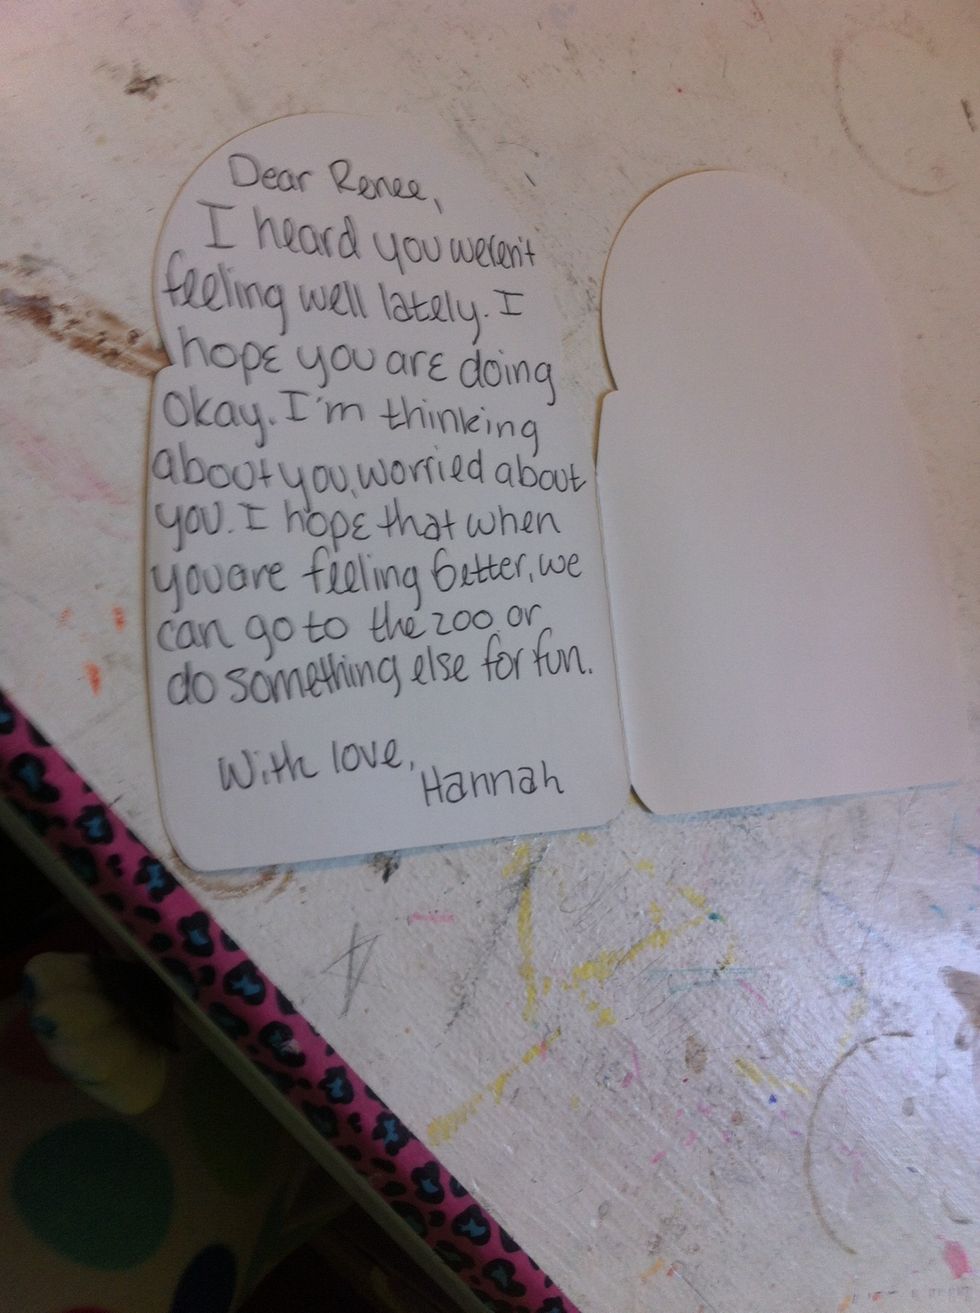 Dear Renee,
I heard you weren't
feeling well lately. I
hope you are doing
Okay. I'm thinking
about you, worried about
you. I hope that when
you are feeling better, we
can go to the zoo or
do something else for fun.
With love,
Hannah